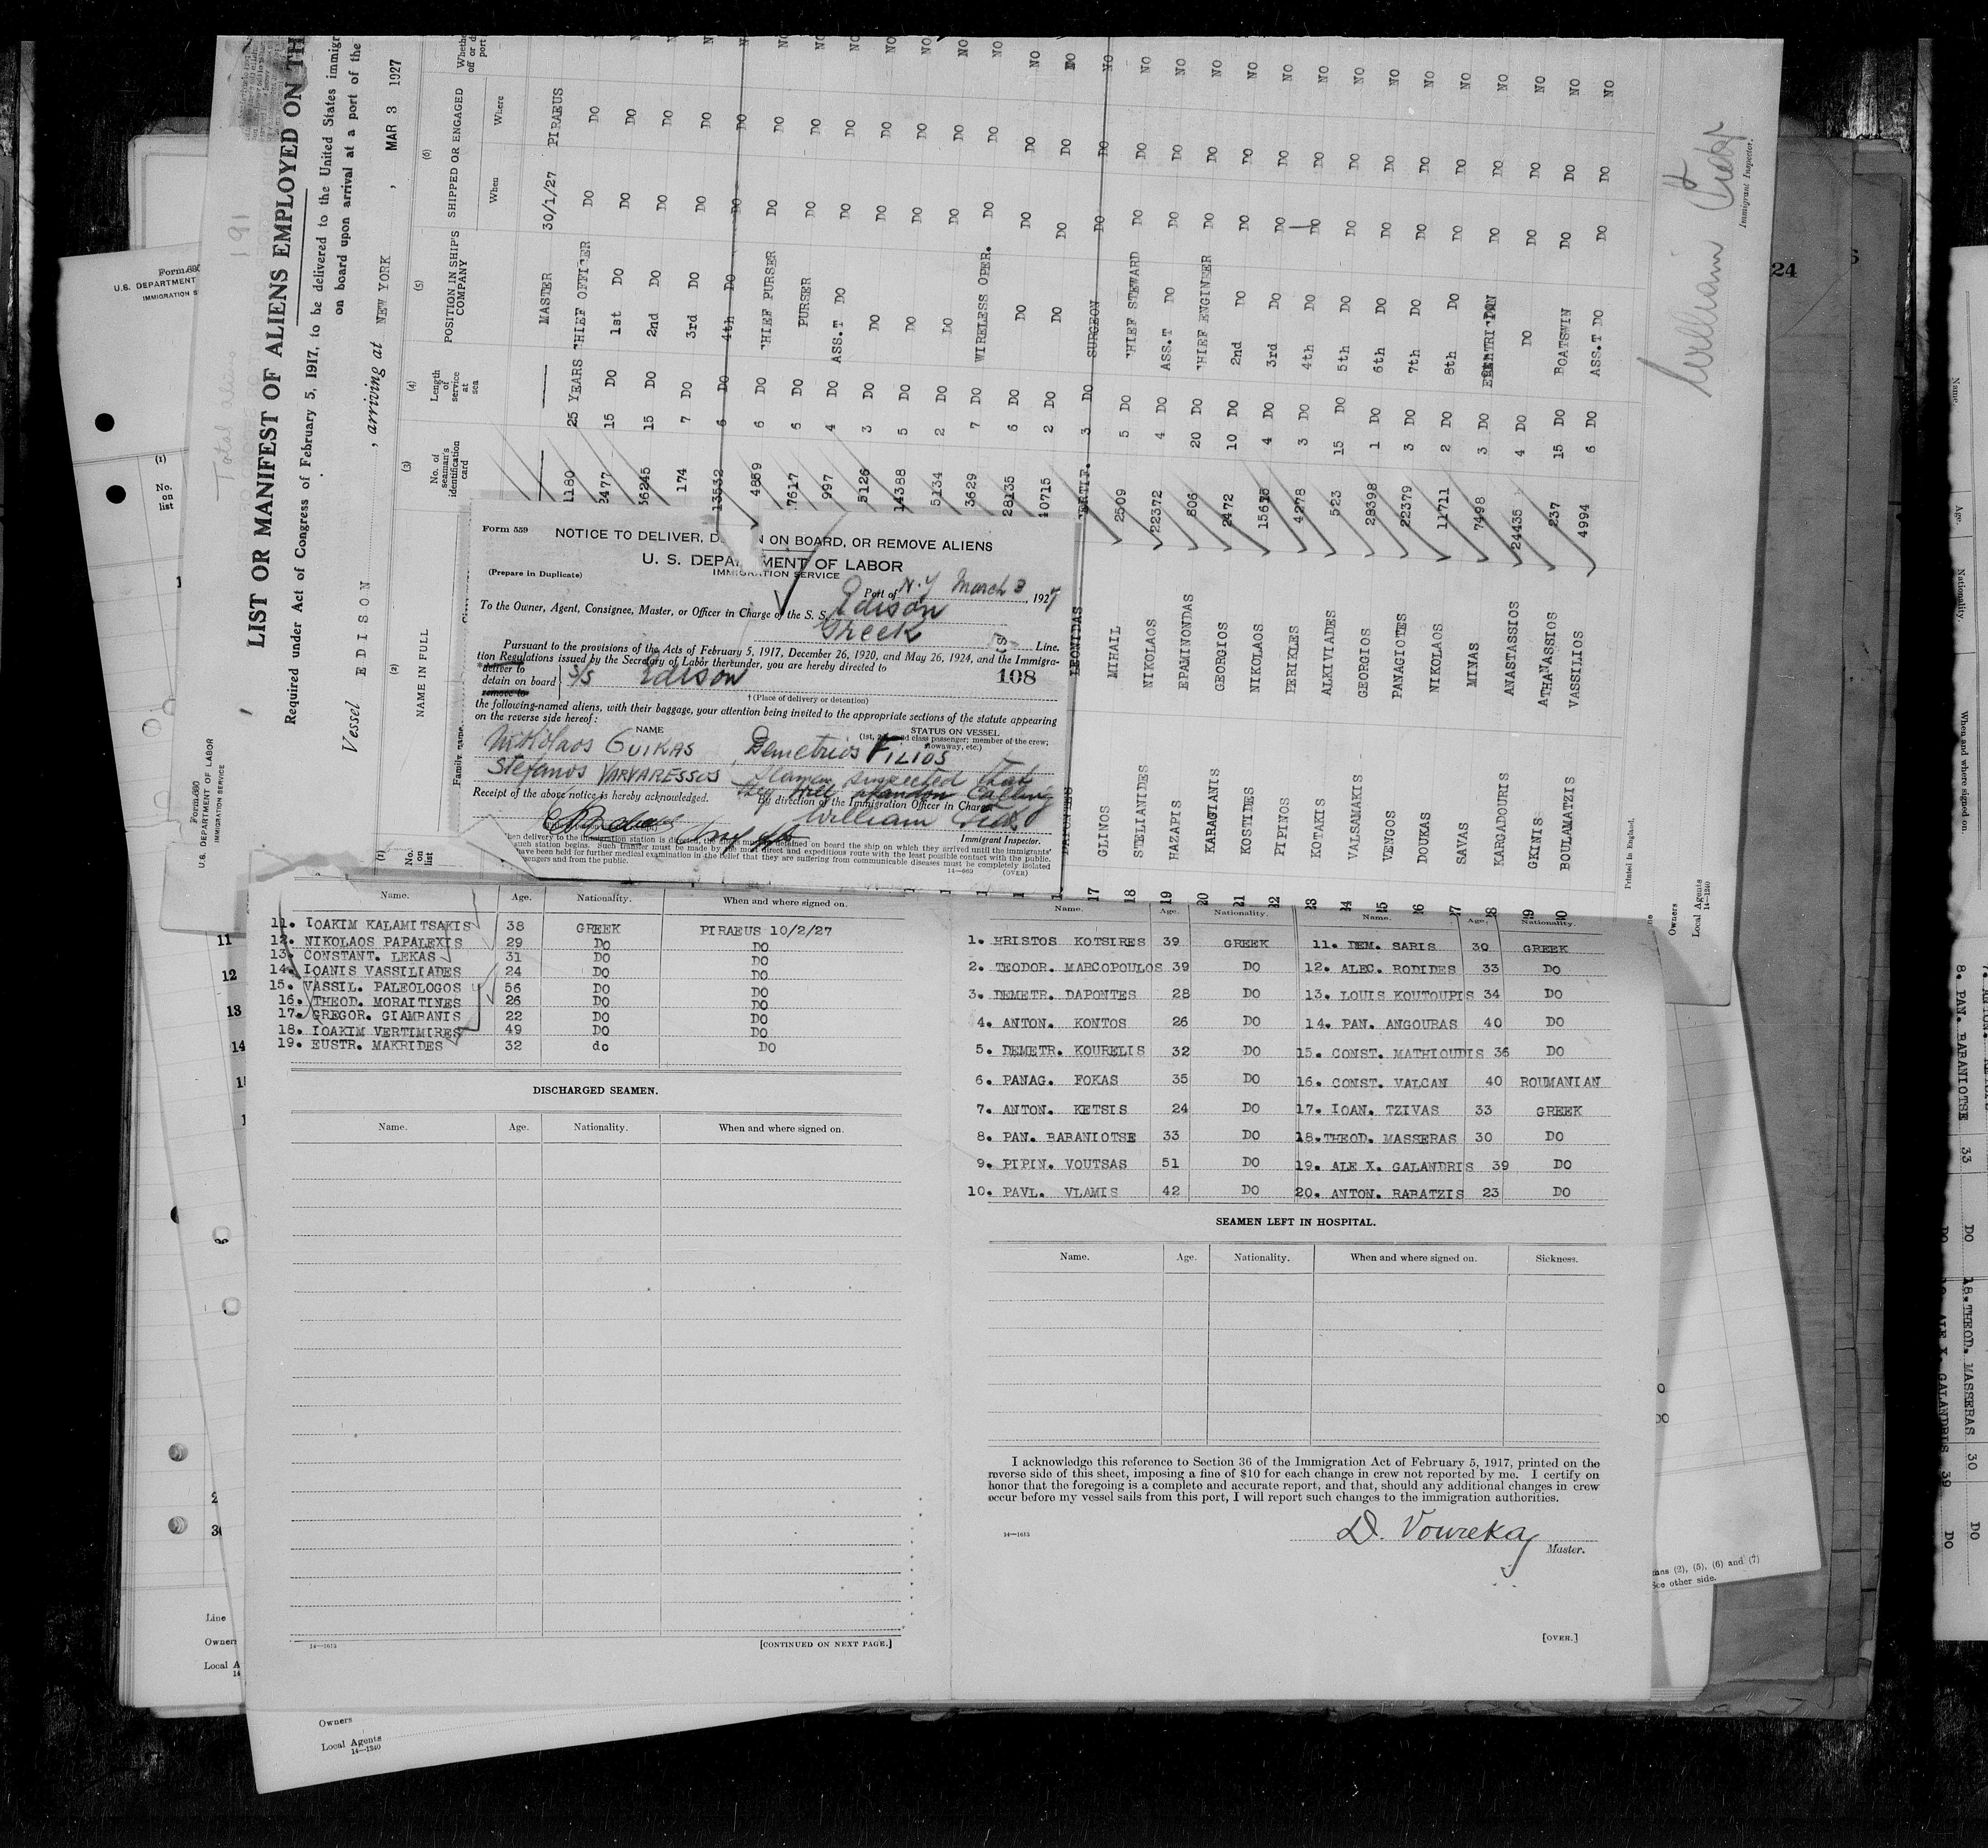 Total aliens 191
LIST OR MANIFEST OF ALIENS EMPLOYED ON TH
Required under Act of Congress of February 5, 1917, to be delivered to the United States immigr
on board upon arrival at a port of the
Vessel EDISON , arriving at NEW YORK , MAR 3 1927
(1) (2) (3) (4) (5) (6)
No. on list
NAME IN FULL
No. of seaman's identification card
Length of service at sea
POSITION IN SHIP'S COMPANY
SHIPPED OR ENGAGED
When Where
MASTER 30/1/27 PIRAEUS
1180 25 YEARS CHIEF OFFICER DO DO
2477 15 DO 1st DO DO DO
36245 15 DO 2nd DO DO DO
174 7 DO 3rd DO DO DO
13532 6 DO 4th DO DO DO
4859 6 DO CHIEF PURSER DO DO NO
17617 6 DO PURSER DO DO NO
997 4 DO ASS.T DO DO DO NO
5126 3 DO DO DO DO NO
14388 5 DO DO DO DO NO
5134 2 DO DO DO DO NO
3629 7 DO WIRELESS OPER. DO DO NO
28135 6 DO DO DO DO NO
10715 2 DO DO DO DO NO
DAPONTES LEONIDAS CERTIF. 3 DO SURGEON DO DO NO
17 GLINOS MIHAIL 2509 5 DO CHIEF STEWARD DO DO NO
18 STELIANIDES NIKOLAOS 22372 4 DO ASS.T DO DO DO NO
19 HAZAPIS EPAMINONDAS 606 20 DO CHIEF ENGINEER DO DO NO
20 KARAGIANIS GEORGIOS 2472 10 DO 2nd DO DO DO NO
21 KOSTIDES NIKOLAOS 15675 4 DO 3rd DO DO DO NO
22 PIPINOS PERIKLES 4278 3 DO 4th DO DO DO NO
23 KOTAKIS ALKIVIADES 523 15 DO 5th DO DO DO NO
24 VALSAMAKIS GEORGIOS 28398 1 DO 6th DO DO DO NO
25 VENGOS PANAGIOTES 22379 3 DO 7th DO DO DO NO
26 DOUKAS NIKOLAOS 11711 2 DO 8th DO DO DO NO
27 SAVAS MINAS 7498 3 DO DO DO NO
28 KARGADOURIS ANASTASSIOS 24435 4 DO DO DO DO NO
29 GKINIS ATHANASSIOS 237 15 DO BOATSWIN DO DO NO
30 BOULAMATZIS VASSILIOS 4994 6 DO ASS.T DO DO DO NO
Printed in England.
Owners
Local Agents
14—1240
William
Immigrant Inspector.
Form 559
NOTICE TO DELIVER, D N ON BOARD, OR REMOVE ALIENS
U. S. DEPARTMENT OF LABOR
IMMIGRATION SERVICE
(Prepare in Duplicate)
Port of N.Y March 3, 1927
To the Owner, Agent, Consignee, Master, or Officer in Charge of the S. S. Edison
Greek Line.
Pursuant to the provisions of the Acts of February 5, 1917, December 26, 1920, and May 26, 1924, and the Immigra-
tion Regulations issued by the Secretary of Labor thereunder, you are hereby directed to
*deliver to
detain on board
remove to
S/S Edison 108
† (Place of delivery or detention)
the following-named aliens, with their baggage, your attention being invited to the appropriate sections of the statute appearing
on the reverse side hereof:
NAME STATUS ON VESSEL
(1st, 2d, 3d class passenger; member of the crew; stowaway, etc.)
Nikolaos GUIKAS , Demetrios FILIOS
Stefanos VARVARESSOS suspected that
they will abandon calling
Receipt of the above notice is hereby acknowledged.
By direction of the Immigration Officer in Charge
William
Immigrant Inspector.
When delivery to the immigration station is directed, the aliens must be detained on board the ship on which they arrived until the immigrants'
such station begins. Such transfer must be made by the most direct and expeditious route with the least possible contact with the public.
have been held for further medical examination in the belief that they are suffering from communicable diseases must be completely isolated
sengers and from the public.
14—669 (OVER)
Form 680
U. S. DEPARTMENT OF LABOR
IMMIGRATION SERVICE
Form 680
U.S. DEPARTMENT
IMMIGRATION S
(1)
No. on list
Name. Age. Nationality. When and where signed on.
11. IOAKIM KALAMITSAKIS 38 GREEK PIRAEUS 10/2/27
12. NIKOLAOS PAPALEXIS 29 DO DO
13. CONSTANT. LEKAS 31 DO DO
14. IOANIS VASSILIADES 24 DO DO
15. VASSIL. PALEOLOGOS 56 DO DO
16. THEOD. MORAITINES 26 DO DO
17. GREGOR. GIAMBANIS 22 DO DO
18. IOAKIM VERTIMIRES 49 DO DO
19. EUSTR. MAKRIDES 32 do DO
DISCHARGED SEAMEN.
Name. Age. Nationality. When and where signed on.
14—1615 [CONTINUED ON NEXT PAGE.]
Name. Age. Nationality. Name. Age. Nationality.
1. HRISTOS KOTSIRES 39 GREEK 11. DEM. SARIS 30 GREEK
2. TEODOR. MARCOPOULOS 39 DO 12. ALEC. RODIDES 33 DO
3. DEMETR. DAPONTES 28 DO 13. LOUIS KOUTOUPIS 34 DO
4. ANTON. KONTOS 26 DO 14. PAN. ANGOURAS 40 DO
5. DEMETR. KOURELIS 32 DO 15. CONST. MATHIOUDIS 36 DO
6. PANAG. FOKAS 35 DO 16. CONST. VALCAN 40 ROUMANIAN
7. ANTON. KETSIS 24 DO 17. IOAN. TZIVAS 33 GREEK
8. PAN. BARANIOTSE 33 DO 18. THEOD. MASSERAS 30 DO
9. PIPIN. VOUTSAS 51 DO 19. ALE X. GALANDRIS 39 DO
10. PAVL. VLAMIS 42 DO 20. ANTON. RABATZIS 23 DO
SEAMEN LEFT IN HOSPITAL.
Name. Age. Nationality. When and where signed on. Sickness.
I acknowledge this reference to Section 36 of the Immigration Act of February 5, 1917, printed on the
reverse side of this sheet, imposing a fine of $10 for each change in crew not reported by me. I certify on
honor that the foregoing is a complete and accurate report, and that, should any additional changes in crew
occur before my vessel sails from this port, I will report such changes to the immigration authorities.
14—1615
D. Voureka
Master.
[OVER.]
11
12
13
14
Line
Owners
Local A
14
Owners
Local Agents
14—1240
24
mns (2), (5), (6) and (7)
See other side.
Name. Age. Nationality. When and where signed on.
8. PAN. BARANIOTSE 33 DO 18. THEOD. MASSERAS 30 DO
DO 19. ALE X. GALANDRIS 39 DO